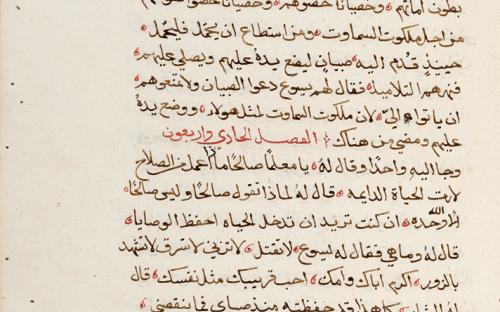 بطون امهاتهم وخصيانا خصوهم وخصيانا خصوا
من اجل ملكوت السماوت ومن استطاع ان يحمل فليحمل
حينيذٍ قدم اليه صبيان ليضع يده عليهم ويصلي عليهم
فنهرهم التلاميذ فقال لهم يسوع دعوا الصبيان ولا تمنعوهم
ان ياتوا اليّ لان ملكوت السماوت لمثل هولاء ووضع يده
عليهم ومضي من هناك الفصل الحادي واربعون
وجا اليه واحدا وقال له يا معلما صالحا ماذا اعمل من الصلاح
لارث الحياة الدايمه قال له لماذا تقول صالحا وليس صالحا
الا الله وحده ان كنت تريد ان تدخل الحياه احفظ الوصايا
قال له وما هي فقال له يسوع لا تقتل لا تزني لا تسرق لا تشهد
بالزور اكرم اباك وامك احب قريبك مثل نفسك قال
له الشاب كل هذا قد حفظته منذ صباي فما ينقصني